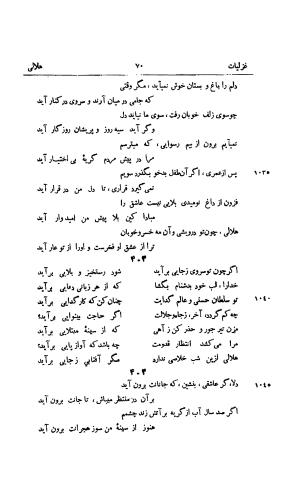 غزلیات ۷۰ هلالی
دلم را باغ و بستان خوش نمیآید، مگر وقتی
که جامی در میان آرند و سروی در کنار آید
چو سوی زلف خوبان رفت، سوی ما نیاید دل
وگر آید سیه روز و پریشان روزگار آید
نمیآیم برون از بیم رسوایی، که میترسم
مرا در پیش مردم گریهٔ بی اختیار آید
۱۰۳۵ پس از عمری، اگر آن طفل بدخو بگذرد سویم
نمی‌گیرد قراری، تا دل من در قرار آید
فزون از داغ نومیدی بلایی نیست عاشق را
مبادا کین بلا پیش من امیدوار آید
هلالی، چون تو درویشی و آن مه خسرو خوبان
ترا از عشق او فخرست و او را از تو عار آید
۲۰۳
اگر چون تو سروی زجایی برآید شود رستخیز و بلایی برآید
خدا را، لب خود بدشنام بگشا که از هر زبانی دعایی برآید
۱۰۴۰ تو سلطان حسنی و عالم گدایت چنان کن که کار گدایی برآید
چه کم گردد، آخر، زجاه و جلالت اگر حاجت بینوایی برآید؟
مزن تیر جور و حذر کن ز آهی که از سینهٔ مبتلایی برآید
مرا می‌کشد انتظار قدومت چه باشد که آواز پایی برآید؟
هلالی ازین شب خلاصی ندارد مگر آفتابی زجایی برآید
۲۰۴
۱۰۴۵ دلا، گر عاشقی، بنشین، که جانانت برون آید
برآن در منتظر میباش، تا جانت برون آید
اگر صد سال آب از گریه بر آتش زند چشمم
هنوز از سینهٔ من سوز هجرانت برون آید